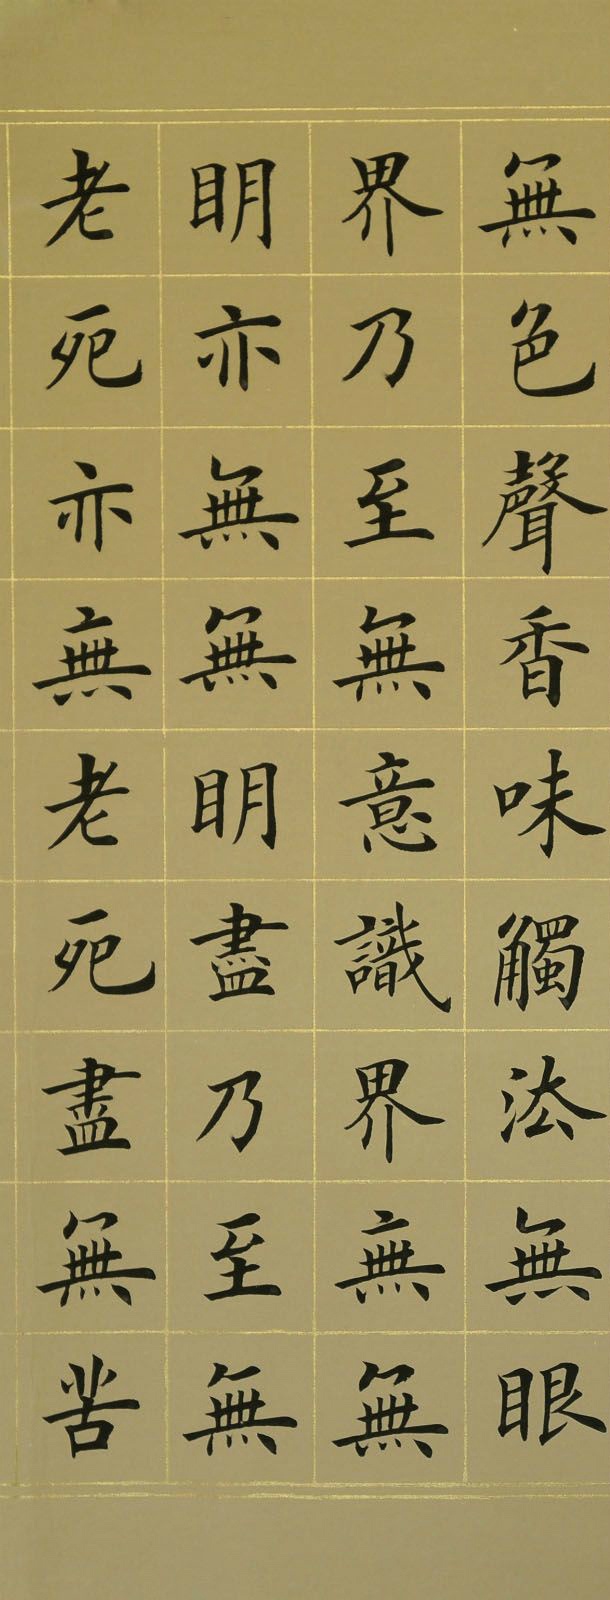 無色聲香味觸法無眼
界乃至無意識界無無
明亦無無明盡乃至無
老死亦無老死盡無苦